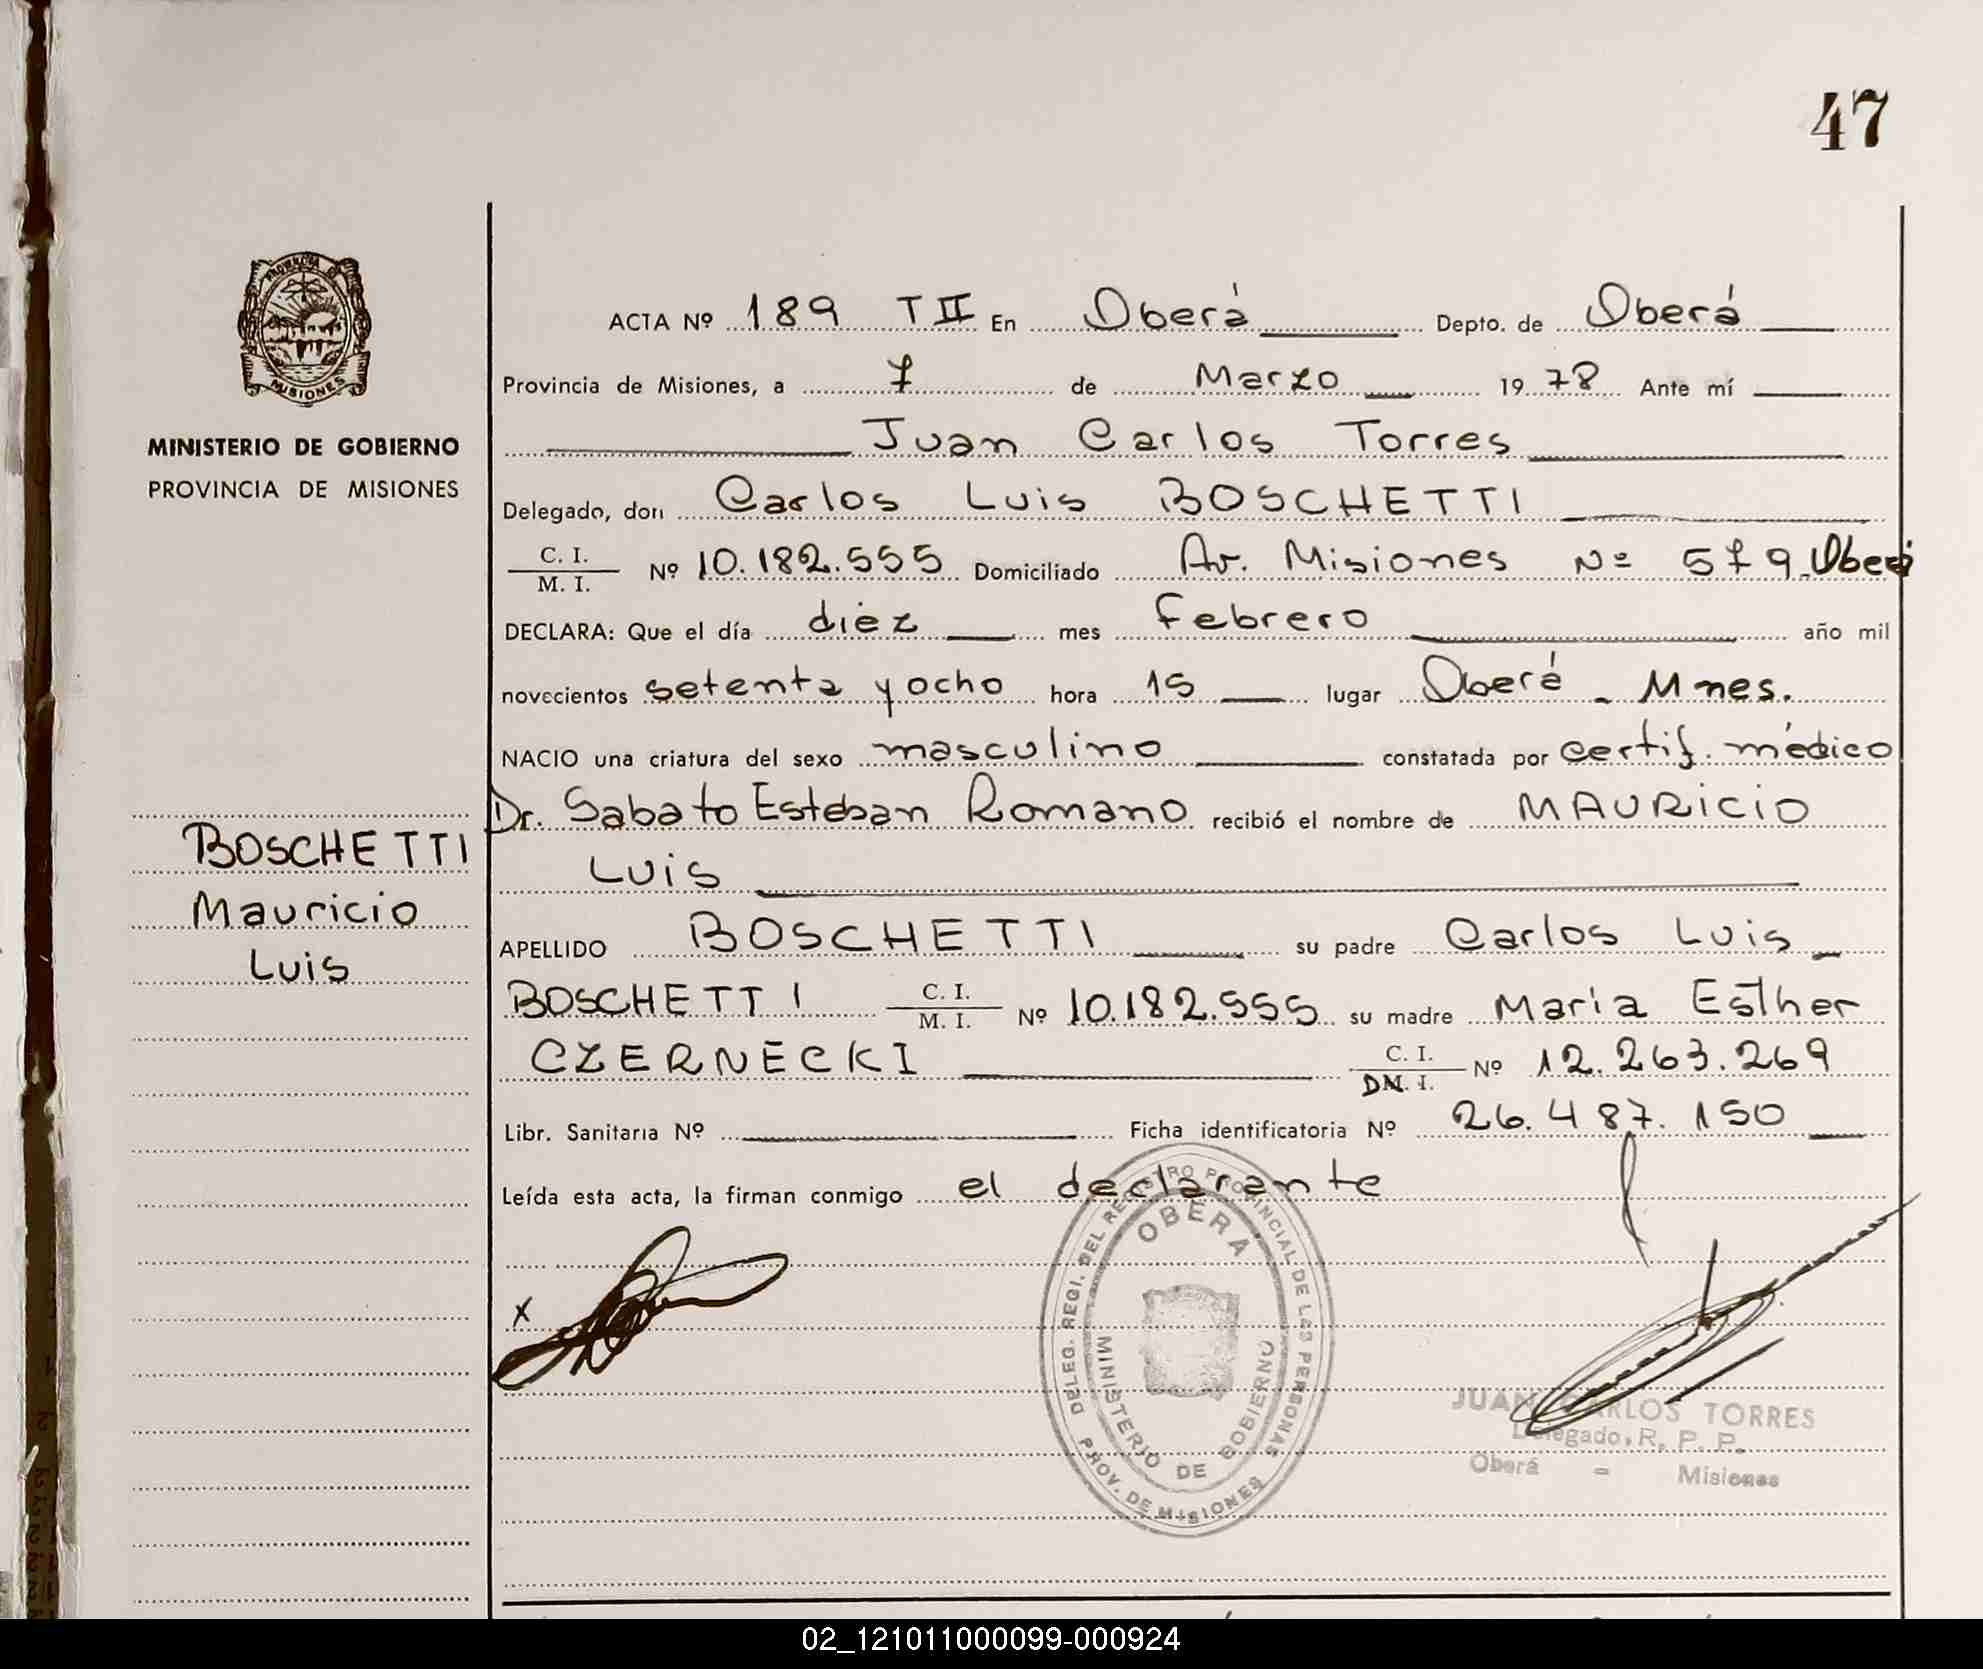 47
PROVINCIA DE
MISIONES
MINISTERIO DE GOBIERNO
PROVINCIA DE MISIONES
BOSCHETTI
Mauricio
Luis
ACTA Nº 189 T II En Oberá Depto. de Oberá
Provincia de Misiones, a 7 de Marzo 1978 Ante mí
Juan Carlos Torres
Delegado, don Carlos Luis BOSCHETTI
C. I. / M. I. Nº 10.182.555 Domiciliado Av. Misiones Nº 579. Oberá
DECLARA: Que el día diez mes Febrero año mil
novecientos setenta y ocho hora 15 lugar Oberá - Mnes.
NACIO una criatura del sexo masculino constatada por certif. médico
Dr. Sabato Esteban Romano recibió el nombre de MAURICIO
Luis
APELLIDO BOSCHETTI su padre Carlos Luis
BOSCHETTI C. I. / M. I. Nº 10.182.555 su madre María Esther
CZERNECKI C. I. / DN. I. Nº 12.263.269
Libr. Sanitaria Nº Ficha identificatoria Nº 26.487.150
Leída esta acta, la firman conmigo el declarante
x
DELEG. REGI. DEL REGISTRO PROVINCIAL DE LAS PERSONAS
OBERA
MINISTERIO DE GOBIERNO
PROV. DE MISIONES
JUAN CARLOS TORRES
Delegado, R. P. P.
Oberá - Misiones
02_121011000099-000924